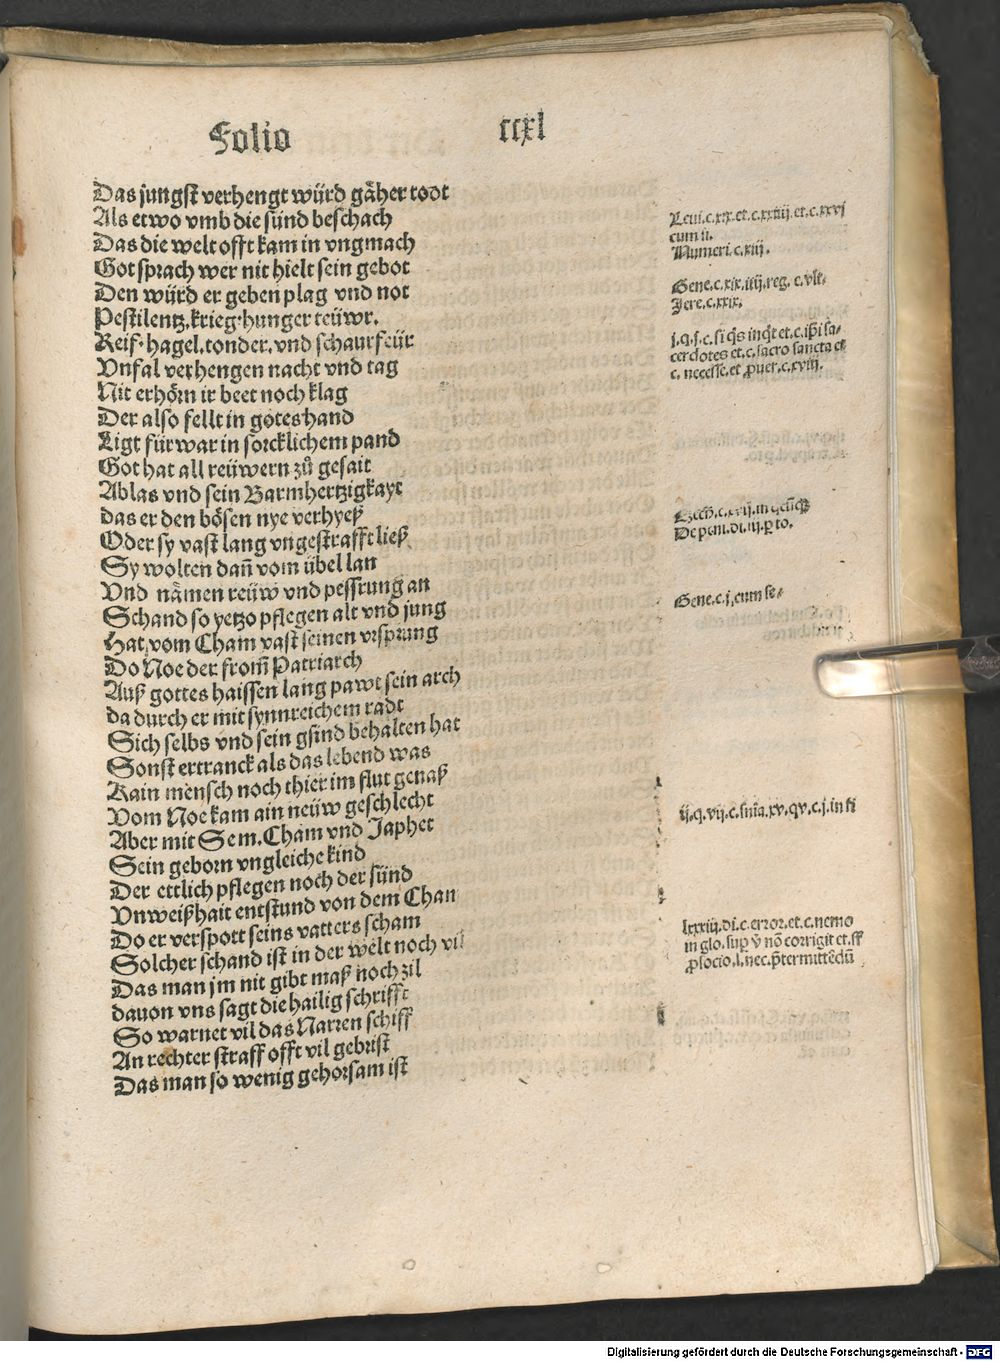 Folio ccxl
Das jungst verhengt würd gäher todt
Als etwo vmb die sünd beschach
Das die welt offt kam in vngmach
Got sprach wer nit hielt sein gebot
Den würd er geben plag vnd not
Pestilentz.krieg.hunger teüwr.
Reif.hagel.tonder.vnd schaurfeür
Vnfal verhengen nacht vnd tag
Nit erhörn ir beet noch klag
Der also fellt in gotes hand
Ligt fürwar in sorcklichem pand
Got hat all reüwern zů gesait
Ablas vnd sein Barmhertzigkayt
das er den bösen nye verhyeß
Oder sy vast lang vngestrafft ließ
Sy wolten dañ vom übel lan
Vnd nämen reüw vnd pessrung an
Schand so yetzo pflegen alt vnd jung
Hat vom Cham vast seinen vrsprung
Do Noe der from̃ Patriarch
Auß gottes haissen lang pawt sein arch
da durch er mit synnreichem radt
Sich selbs vnd sein gsind behalten hat
Sonst ertranck als das lebend was
Kain mensch noch thier im flut genaß
Vom Noe kam ain neüw geschlecht
Aber mit Sem.Cham vnd Japhet
Sein geborn vngleiche kind
Der ettlich pflegen noch der sünd
Vnweißhait entstund von dem Chan
Do er verspott seins vatters scham
Solcher schand ist in der welt noch vil
Das man jm nit gibt maß noch zil
dauon vns sagt die hailig schrifft
So warnet vil das Narren schiff
An rechter straff offt vil gebrist
Das man so wenig gehorsam ist
Leui.c.xix.et.c.xxiiij.et.c.xxvj
cum ii.
Numeri.c.xiij.
Gene.c.xix.iiij.reg. c.vlt.
Jere.c.xxix.
j.q.j.c.si q̃s inq̃t et.c.ip̃i sa-
cerdotes et.c.sacro sancta et
c. necesse.et ꝓuer.c.xviij.
Ezech.c.xvij.in
De peni.di.iij.ꝑ to.
Gene.c.j.cum se-
ij.q.vij.c.sñia.xv.qv.c.j.in fi
lxxxiij.di.c.error.et.c.nemo
in glo.sup̱ v̾ nõ corrigit et.ff
ꝓsocio.l.nec.p̃termittẽdũ
Digitalisierung gefördert durch die Deutsche Forschungsgemeinschaft - DFG